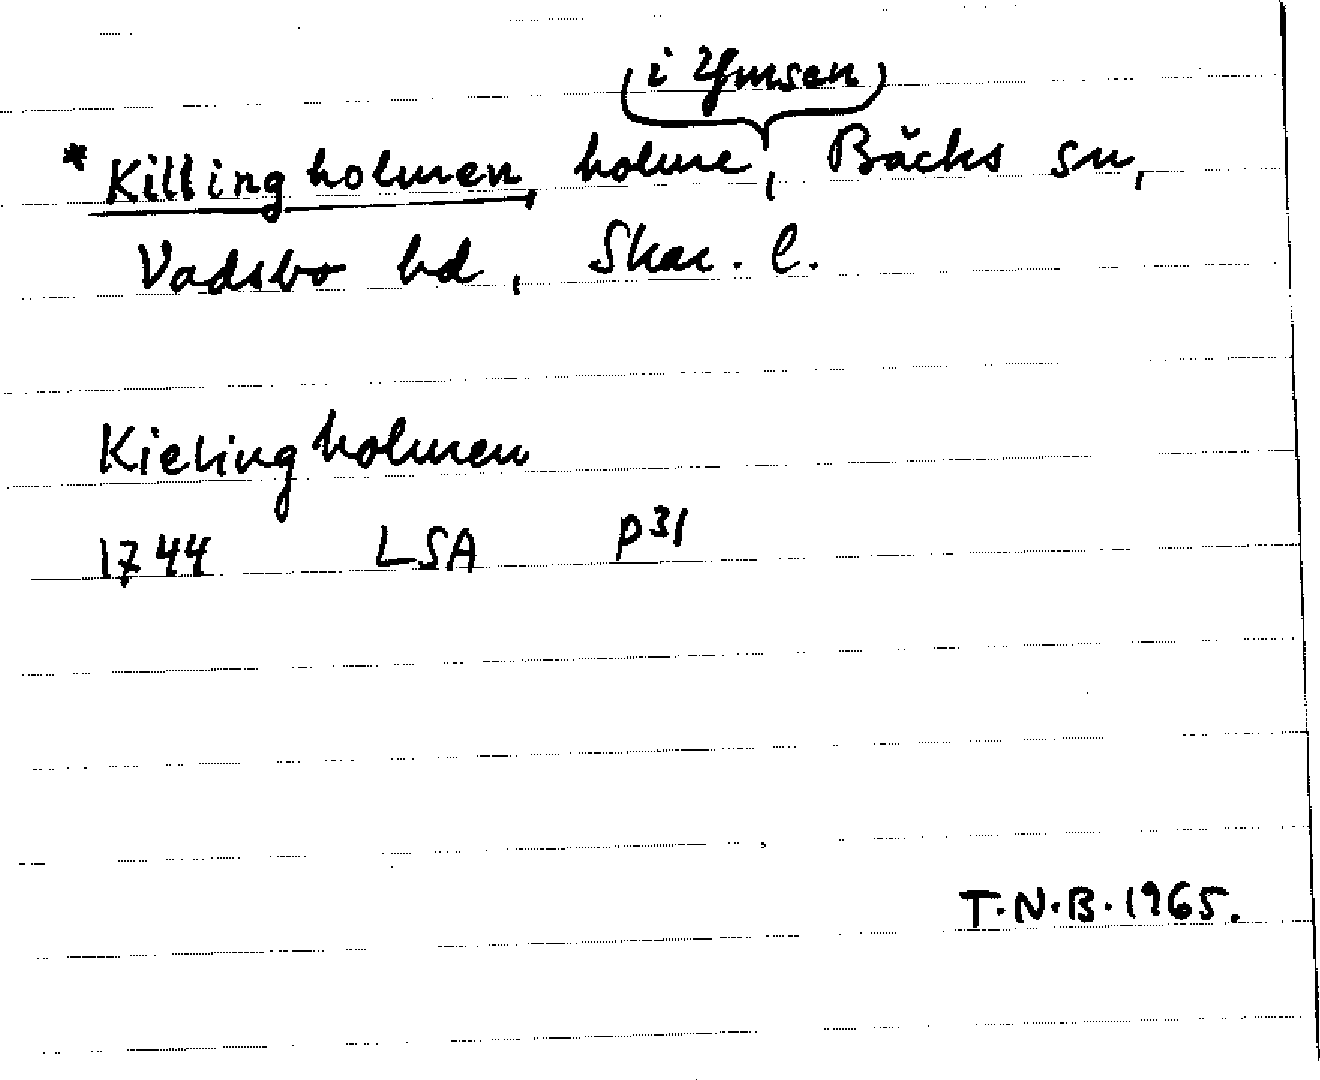 (i Ymsen)
*Killingholmen, holme, Bäcks sn,
Vadsbo hd, Skar. l.
Kielingholmen
1744 LSA P31
T.N.B. 1965.